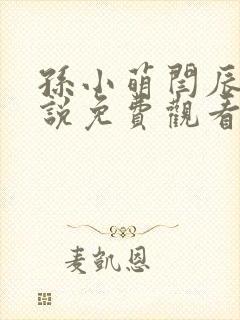 孫小萌閆辰
說免費觀看
麦凱恩